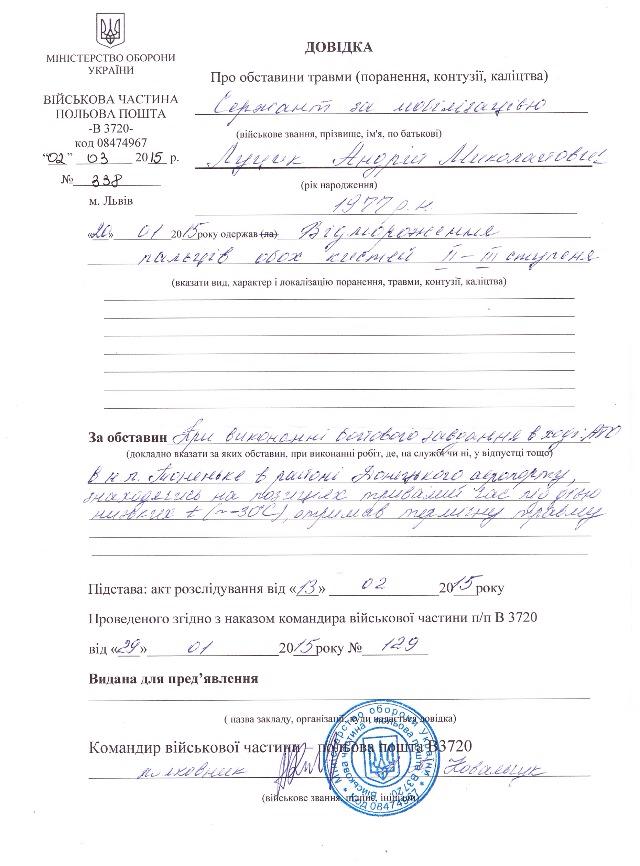 МІНІСТЕРСТВО ОБОРОНИ
УКРАЇНИ
ВІЙСЬКОВА ЧАСТИНА
ПОЛЬОВА ПОШТА
-В 3720-
код 08474967
"02" 03 2015 р.
№ 338
м. Львів
ДОВІДКА
Про обставини травми (поранення, контузії, каліцтва)
Сержант за мобілізацією
(військове звання, прізвище, ім'я, по батькові)
Луцик Андрій Миколайович
(рік народження)
1977 р.н.
«20» 01 2015року одержав (ла) Відмороження
пальців обох кистей ІІ – ІІІ ступеня
(вказати вид, характер і локалізацію поранення, травми, контузії, каліцтва)
За обставин При виконанні бойового завдання в ході АТО
(докладно вказати за яких обставин, при виконанні робіт, де, на службі чи ні, у відпустці тощо)
в н.п. Тоненьке в районі Донецького аеропорту,
знаходячись на позиціях тривалий час під дією
низьких t (~ -30°С), отримав термічну травму
Підстава: акт розслідування від «13» 02 2015 року
Проведеного згідно з наказом командира військової частини п/п В 3720
від «29» 01 2015 року № 129
Видана для пред’явлення
( назва закладу, організації, куди надається довідка)
Командир військової частини – польова пошта В3720
полковник Ковальчук
(військове звання, підпис, ініціали)
Міністерство оборони України
Військова частина польова пошта В3720
Код 08474967